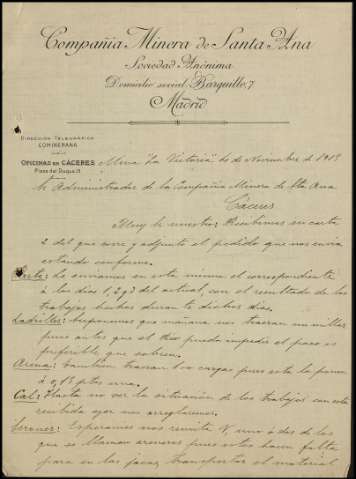 Compañia Minera de Santa Ana
Sociedad Anónima
Domicilio social, Barquillo, 7
Madrid
DIRECCIÓN TELEGRÁFICA
COMINERANA
OFICINAS EN CÁCERES
Plaza del Duque, 11
Mina "La Victoria" de Noviembre de 1919
Sr. Administrador de la Compañía Minera de Sta. Ana
Cáceres
Muy Sr. nuestro: Recibimos su carta
2 del que corre y adjunto el pedido que nos envia
estando conforme.
Parte: Le enviamos en esta misma el correspondiente
á los dias 1, 2 y 3 del actual, con el resultado de los
trabajos hechos durante dichos dias.
Ladrillos: Suponemos que mañana nos traeran un millar
pues antes que el Rio pueda impedir el paso es
preferible que sobren.
Arena: Tambien traeran cargas pues esta la ponen
á 0,15 ptas una.
Cal: Hasta no ver la situacion de los trabajos con esta
recibida ayer nos arreglaremos.
Serones: Esperamos nos remita V. uno ó dos de los
que se llaman areneros pues estos hacen falta
para en las jacas, transportar el material